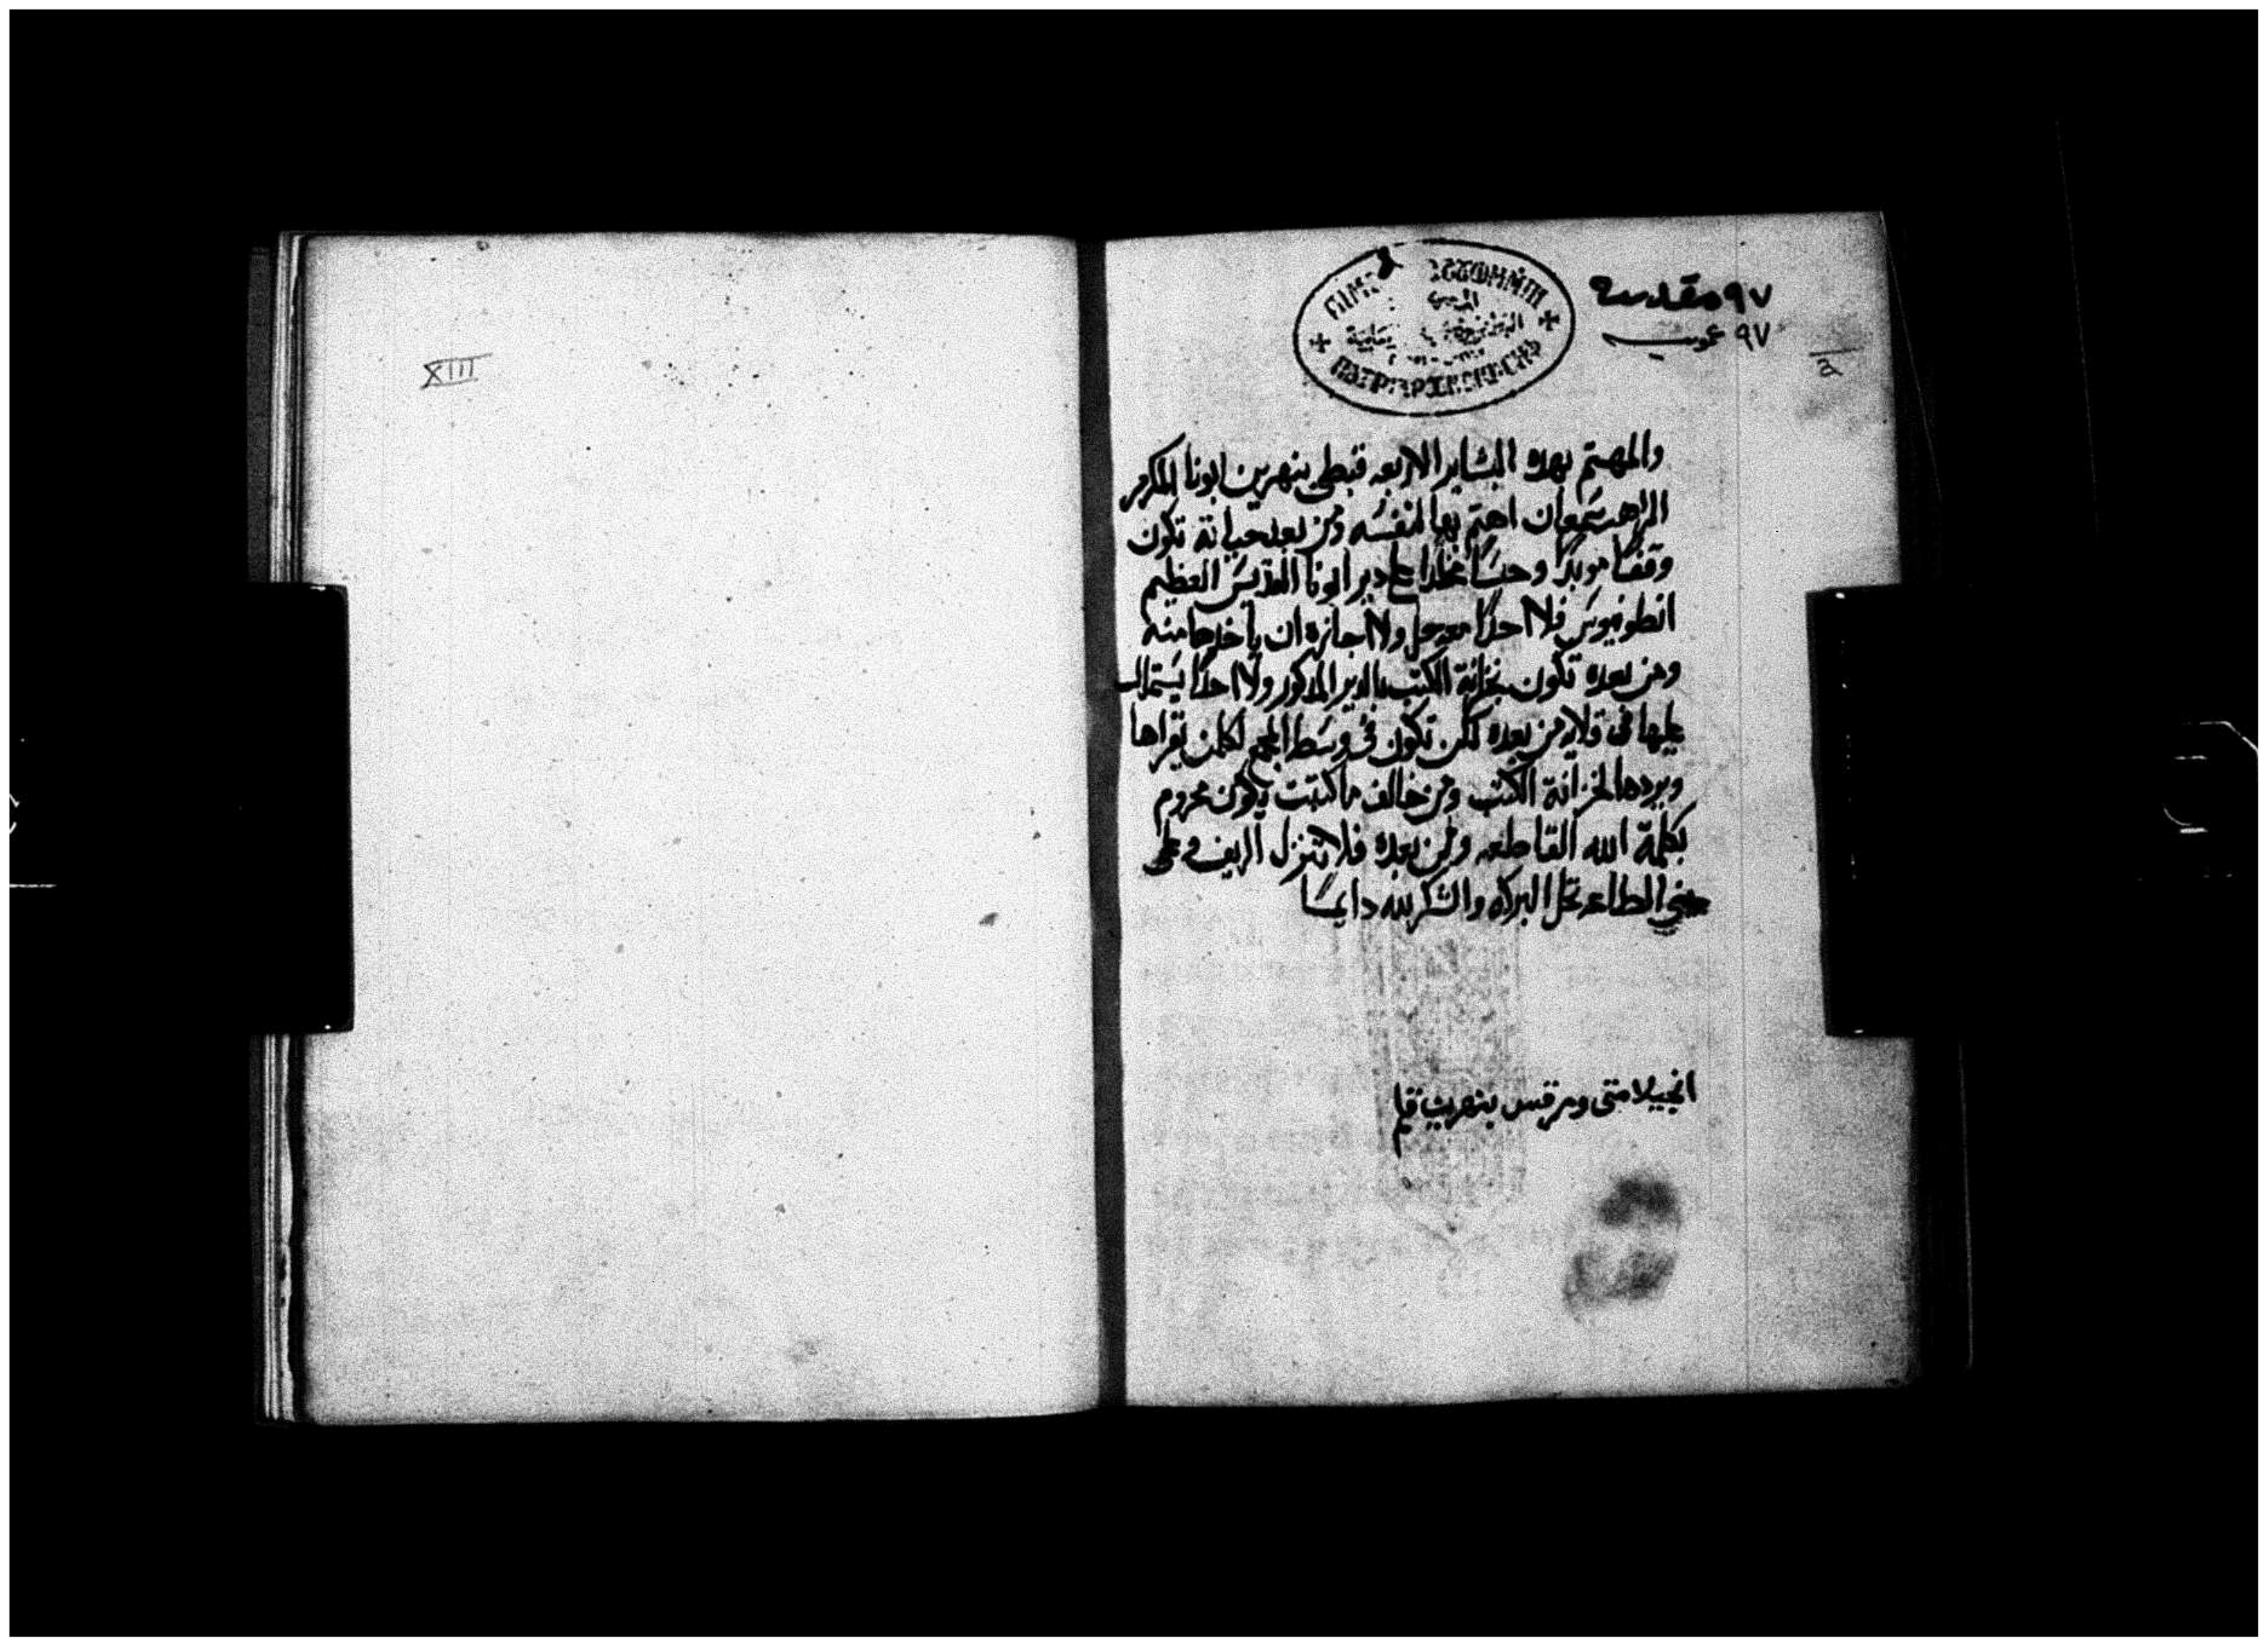 XIII
٩٧ مقدسة
٩٧ عمومية
والمهتم بهده البشاير الاربعه قبطى بنهرين ابونا المكرم
الراهب سمعان اهتم بها لنفسه ومن بعد حياته تكون
وقفا موبدا وحبسا مخلدا على دير ابونا القديس العظيم
انطونيوس فلا احدا معه حل ولا اجازه ان ياخدها منه
ومن بعده تكون بخزانة الكتب بالدير المدكور ولا احدا يستملك
عليها فى قلايه من بعده لكن تكون فى وسط المجمع لكلمن يقراها
ويردها لخزانة الكتب ومن خالف ما كتبت يكون محروم
بكلمة الله القاطعه ومن بعده فلا تنزل الريف وعلى
بني الطاعه تحل البركه والشكر لله دايما
انجيلا متى ومرقس بنهرين قديم